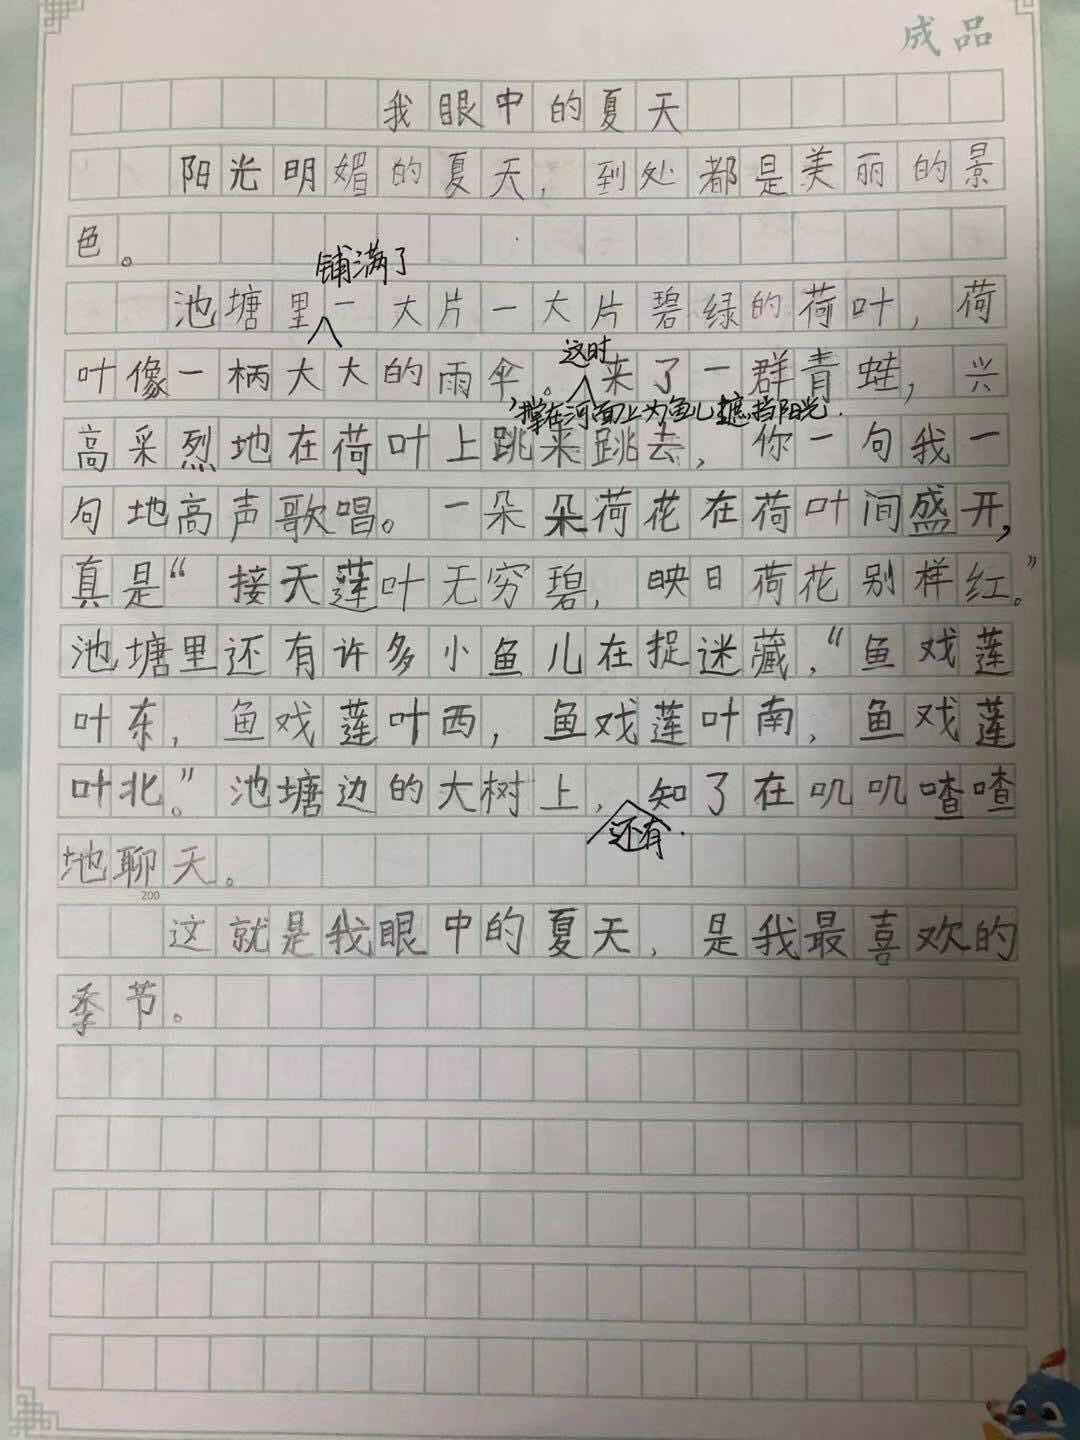 成品
我眼中的夏天
阳光明媚的夏天，到处都是美丽的景
色。
铺满了
池塘里一大片一大片碧绿的荷叶，荷
这时
叶像一柄大大的雨伞。来了一群青蛙，兴
，撑在河面上为鱼儿遮挡阳光.
高采烈地在荷叶上跳来跳去，你一句我一
句地高声歌唱。一朵朵荷花在荷叶间盛开，
真是“接天莲叶无穷碧，映日荷花别样红。”
池塘里还有许多小鱼儿在捉迷藏，“鱼戏莲
叶东，鱼戏莲叶西，鱼戏莲叶南，鱼戏莲
叶北。”池塘边的大树上，知了在叽叽喳喳
还有.
地聊天。
200
这就是我眼中的夏天，是我最喜欢的
季节。